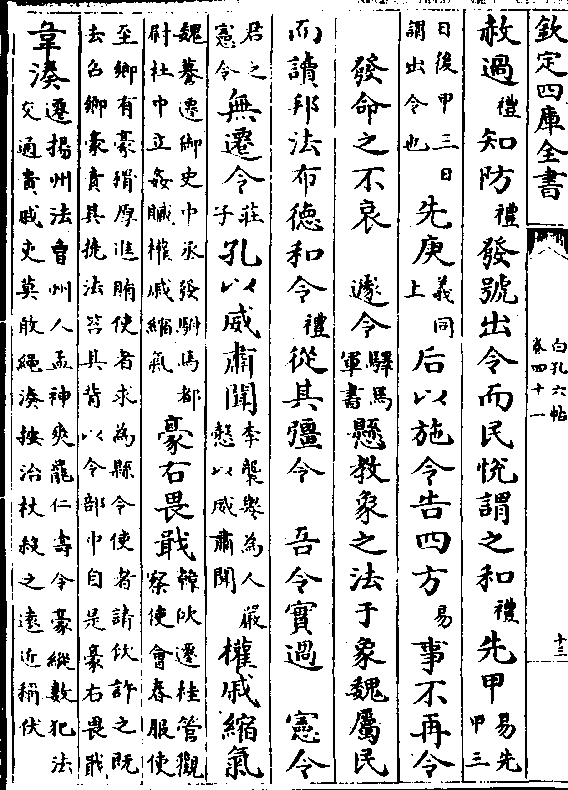 欽定四庫全書
白孔六帖
卷四十一
十三
赦過禮知防禮發號出令而民悅謂之和禮先甲易先甲三
日後甲三日謂出令也先庚義同上后以施令告四方易事不再令
發命之不衷　遽令驛馬軍書懸教象之法于象魏屬民
而讀邦法布德和令禮從其彊令　吾令實過　憲令
君之憲令無遷令莊子孔以威肅聞李襲譽為人嚴慤以威肅聞權戚縮氣
魏謩遷御史中丞發駙馬都尉杜中立姦贓權戚縮氣豪右畏戢韓佽遷桂管觀察使會春服使
至鄉有豪猾厚進賄使者求為縣令使者請佽許之既去召鄉豪責其撓法笞其背以令部中自是豪右畏戢
韋湊遷揚州法曹州人孟神爽罷仁壽令豪縱數犯法交通貴戚吏莫敢繩湊按治杖殺之遠近稱伏